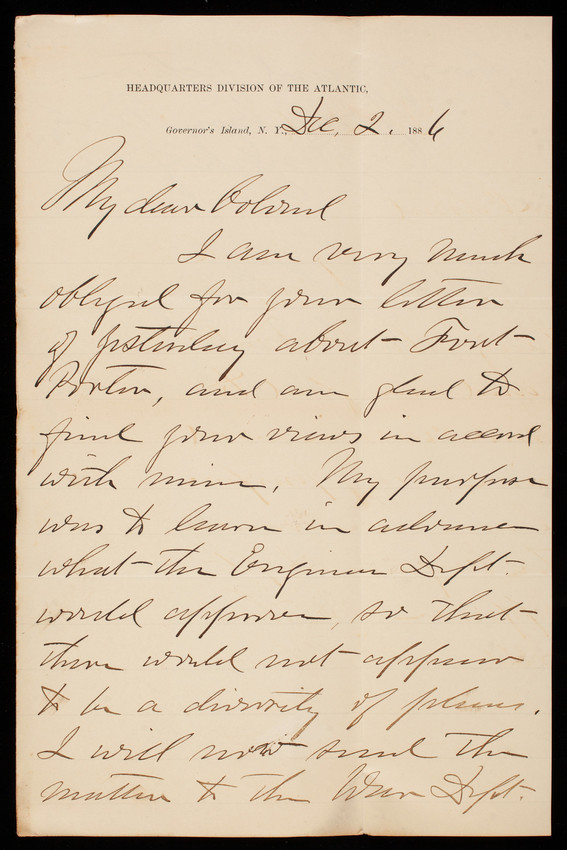 HEADQUARTERS DIVISION OF THE ATLANTIC,
Governor's Island, N. Y., Dec. 2. 1886
My dear Colonel
I am very much
obliged for your letter
of yesterday about Fort
Porter, and am glad to
find your views in accord
with mine. My purpose
was to learn in advance
what the Engineer Dept.
would approve, so that
there would not appear
to be a diversity of plans.
I will now send the
matter to the War Dept.